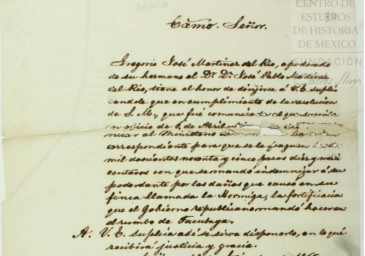 CENTRO DE
ESTUDIOS
DE HISTORIA
DE MEXICO
FUNDACIÓN
Exmo. Señor.
Gregorio José Martinez del Rio, apoderado
de su hermano el Dr. Dn. José Pablo Martinez
del Rio, tiene el honor de dirijirse á V. E. supli
cando que en cumplimiento de la resolucion
de S. M, que fué comunicada
en oficio de 6 de Abril
nicar al Ministerio de
correspondiente para que se le paguen
mil doscientos noventa y cinco pesos diez y seis
centavos con que se mandó indemnizar á su
poderdante por los daños que causó en su
finca llamada la Hormiga, la fortificacion
que el Gobierno republicano mandó hacer en
el rumbo de Tacubaya.
A. V. E. suplica así se sirva disponerlo, en lo qe
recibirá justicia y gracia.